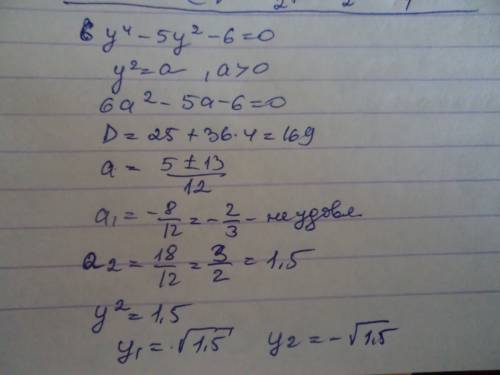 6y⁴ - 5y² - 6 = 0
y² = a , a > 0
6a² - 5a - 6 = 0
D = 25 + 36·4 = 169
a = (5 ± 13)/12
a₁ = -8/12 = -2/3 - неудовл
a₂ = 18/12 = 3/2 = 1,5
y² = 1,5
y₁ = √1,5 y₂ = -√1,5